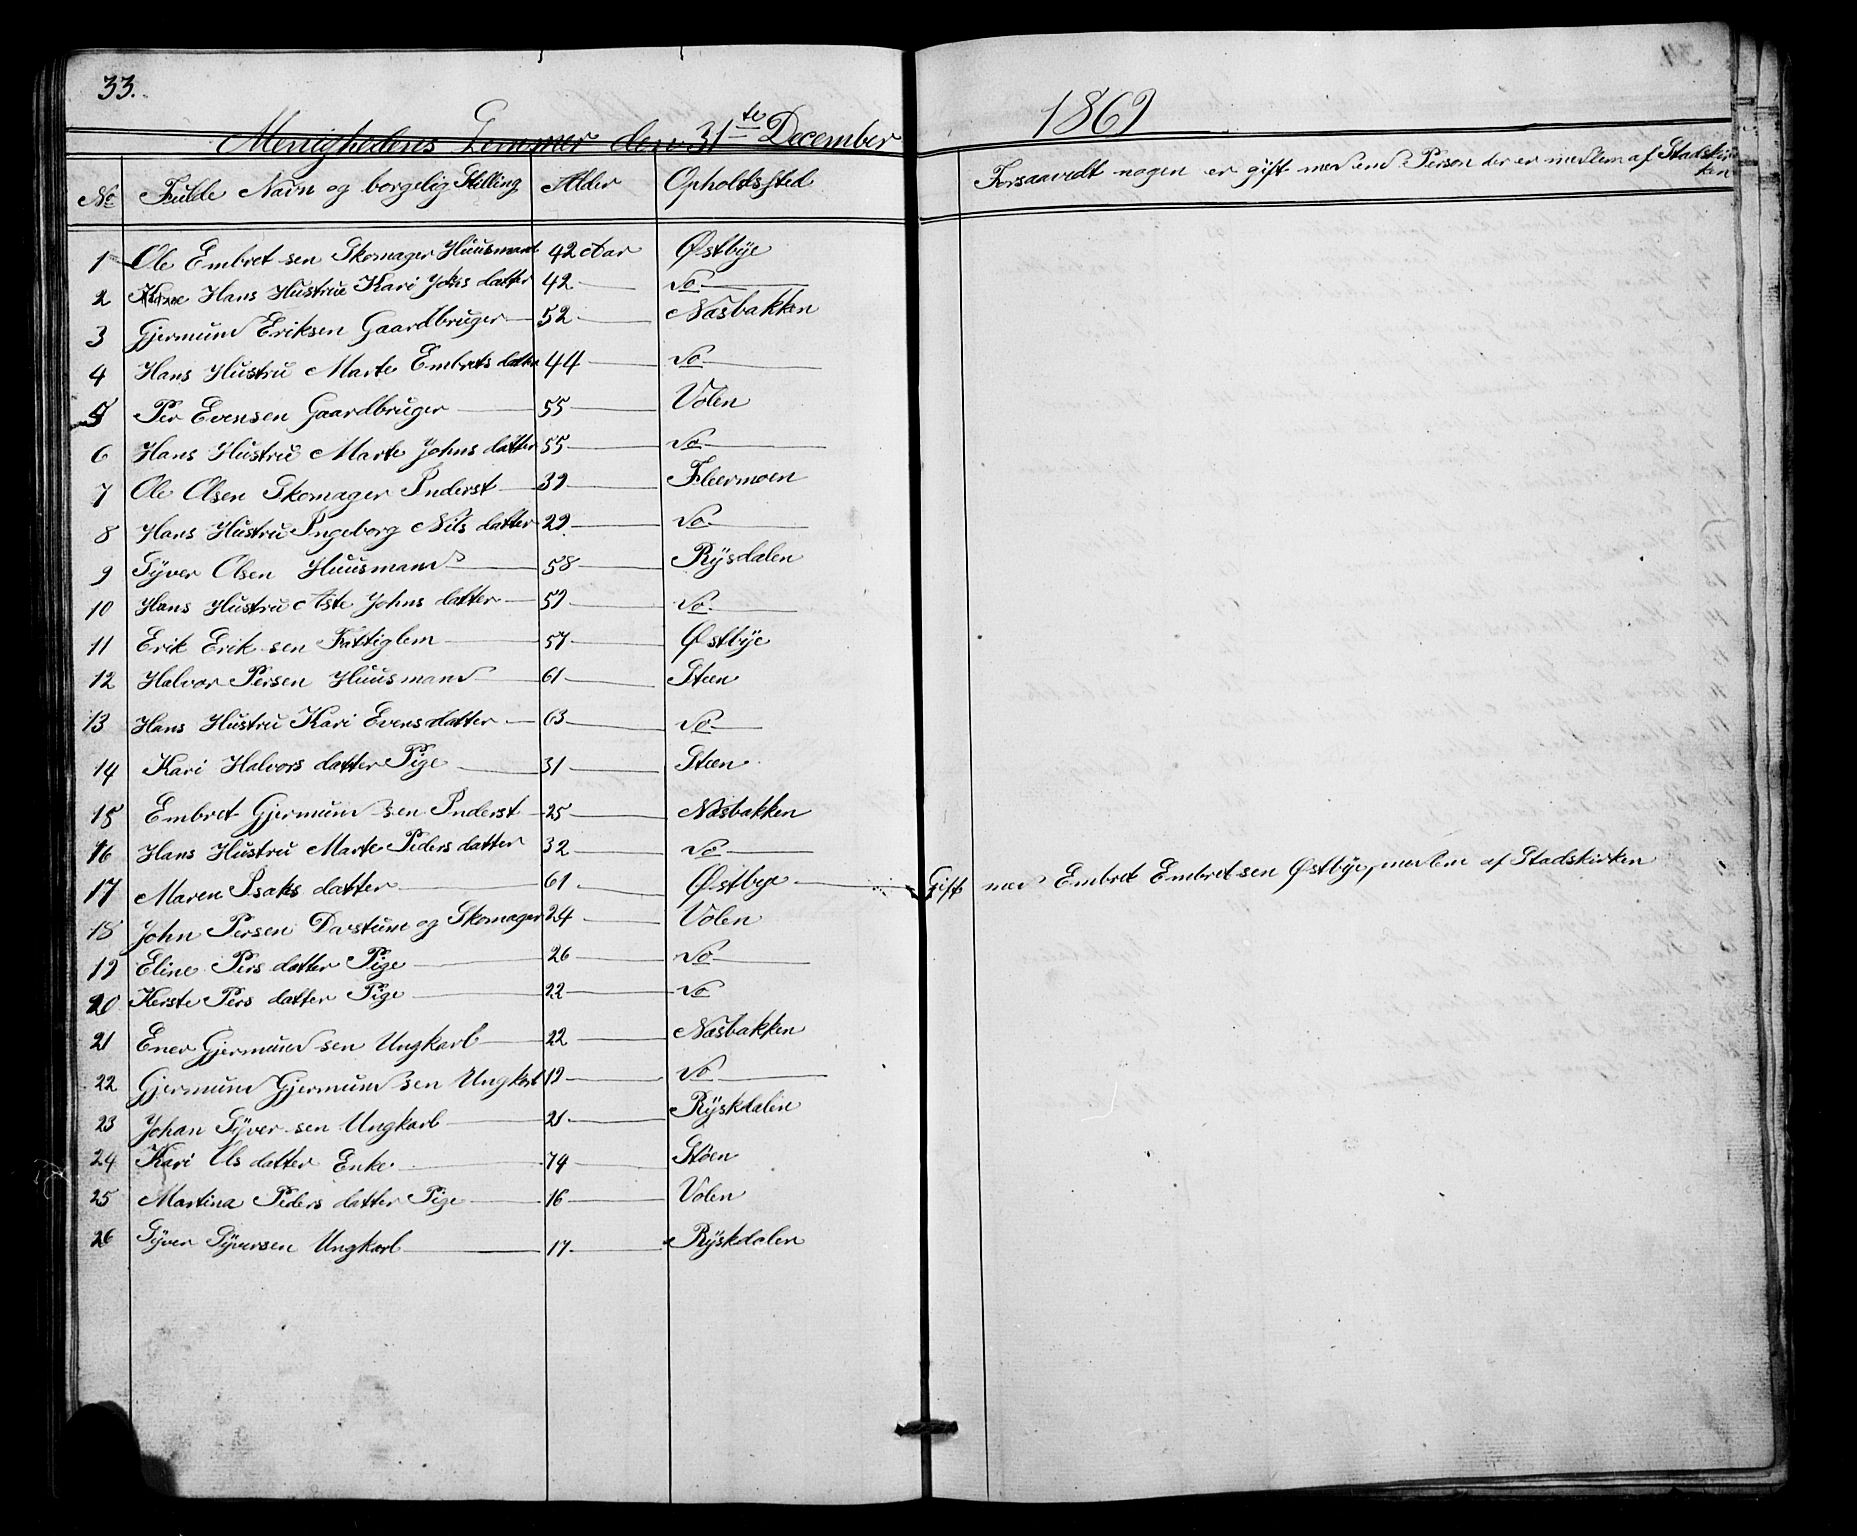 33.
Menighedens Lemmer den 31te December 1869
No Fulde Navn og borgelig Stilling Alder Opholdssted Forsaavedt nogen er gift med end Person der er medlem af Stadskirken
1 Ole Embret sen Skomager Huusmand 42 Aar Østbÿe
2 Hans Hustrue Kari Johs datter 42 Do
3 Gjermund Eriksen Gaardbruger 52 Næsbakken
4 Hans Hustru Marte Embrets datter 44 Do
5 Per Evensen Gaardbruger 55 Volen
6 Hans Hustru Marte Johns datter 55 Do
7 Ole Olsen Skomager Inderst 39 Flermoen
8 Hans Hustru Ingeborg Nils datter 29 Do
9 Sÿver Olsen Huusmand 58 Rÿsdalen
10 Hans Hustru Aste Johns datter 59 Do
11 Erik Erik sen Fattiglem 57 Østbÿe
12 Halvor Persen Huusmand 61 Støen
13 Hans Hustru Kari Evens datter 63 Do
14 Kari Halvors datter Pige 31 Støen
15 Embret Gjermund sen Inderst 25 Næsbakken
16 Hans Hustru Marte Peders datter 32 Do
17 Maren Isaks datter 61 Østbye Gift med Embret Embret sen Østbÿe, medlem af Stadskirken
18 John Persen og Skomager 24 Volen
19 Eline Pers datter Pige 26 Do
20 Kerste Pers datter Pige 22 Do
21 Ener Gjermund sen Ungkarl 22 Næsbakken
22 Gjermund Gjermund sen Ungkarl 19 Do
23 Johan Sÿver sen Ungkarl 21 Rÿskdalen
24 Kari Ols datter Enke 74 Støen
25 Martina Peders datter Pige 16 Volen
26 Sÿver Sÿversen Ungkarl 17 Rÿskdalen